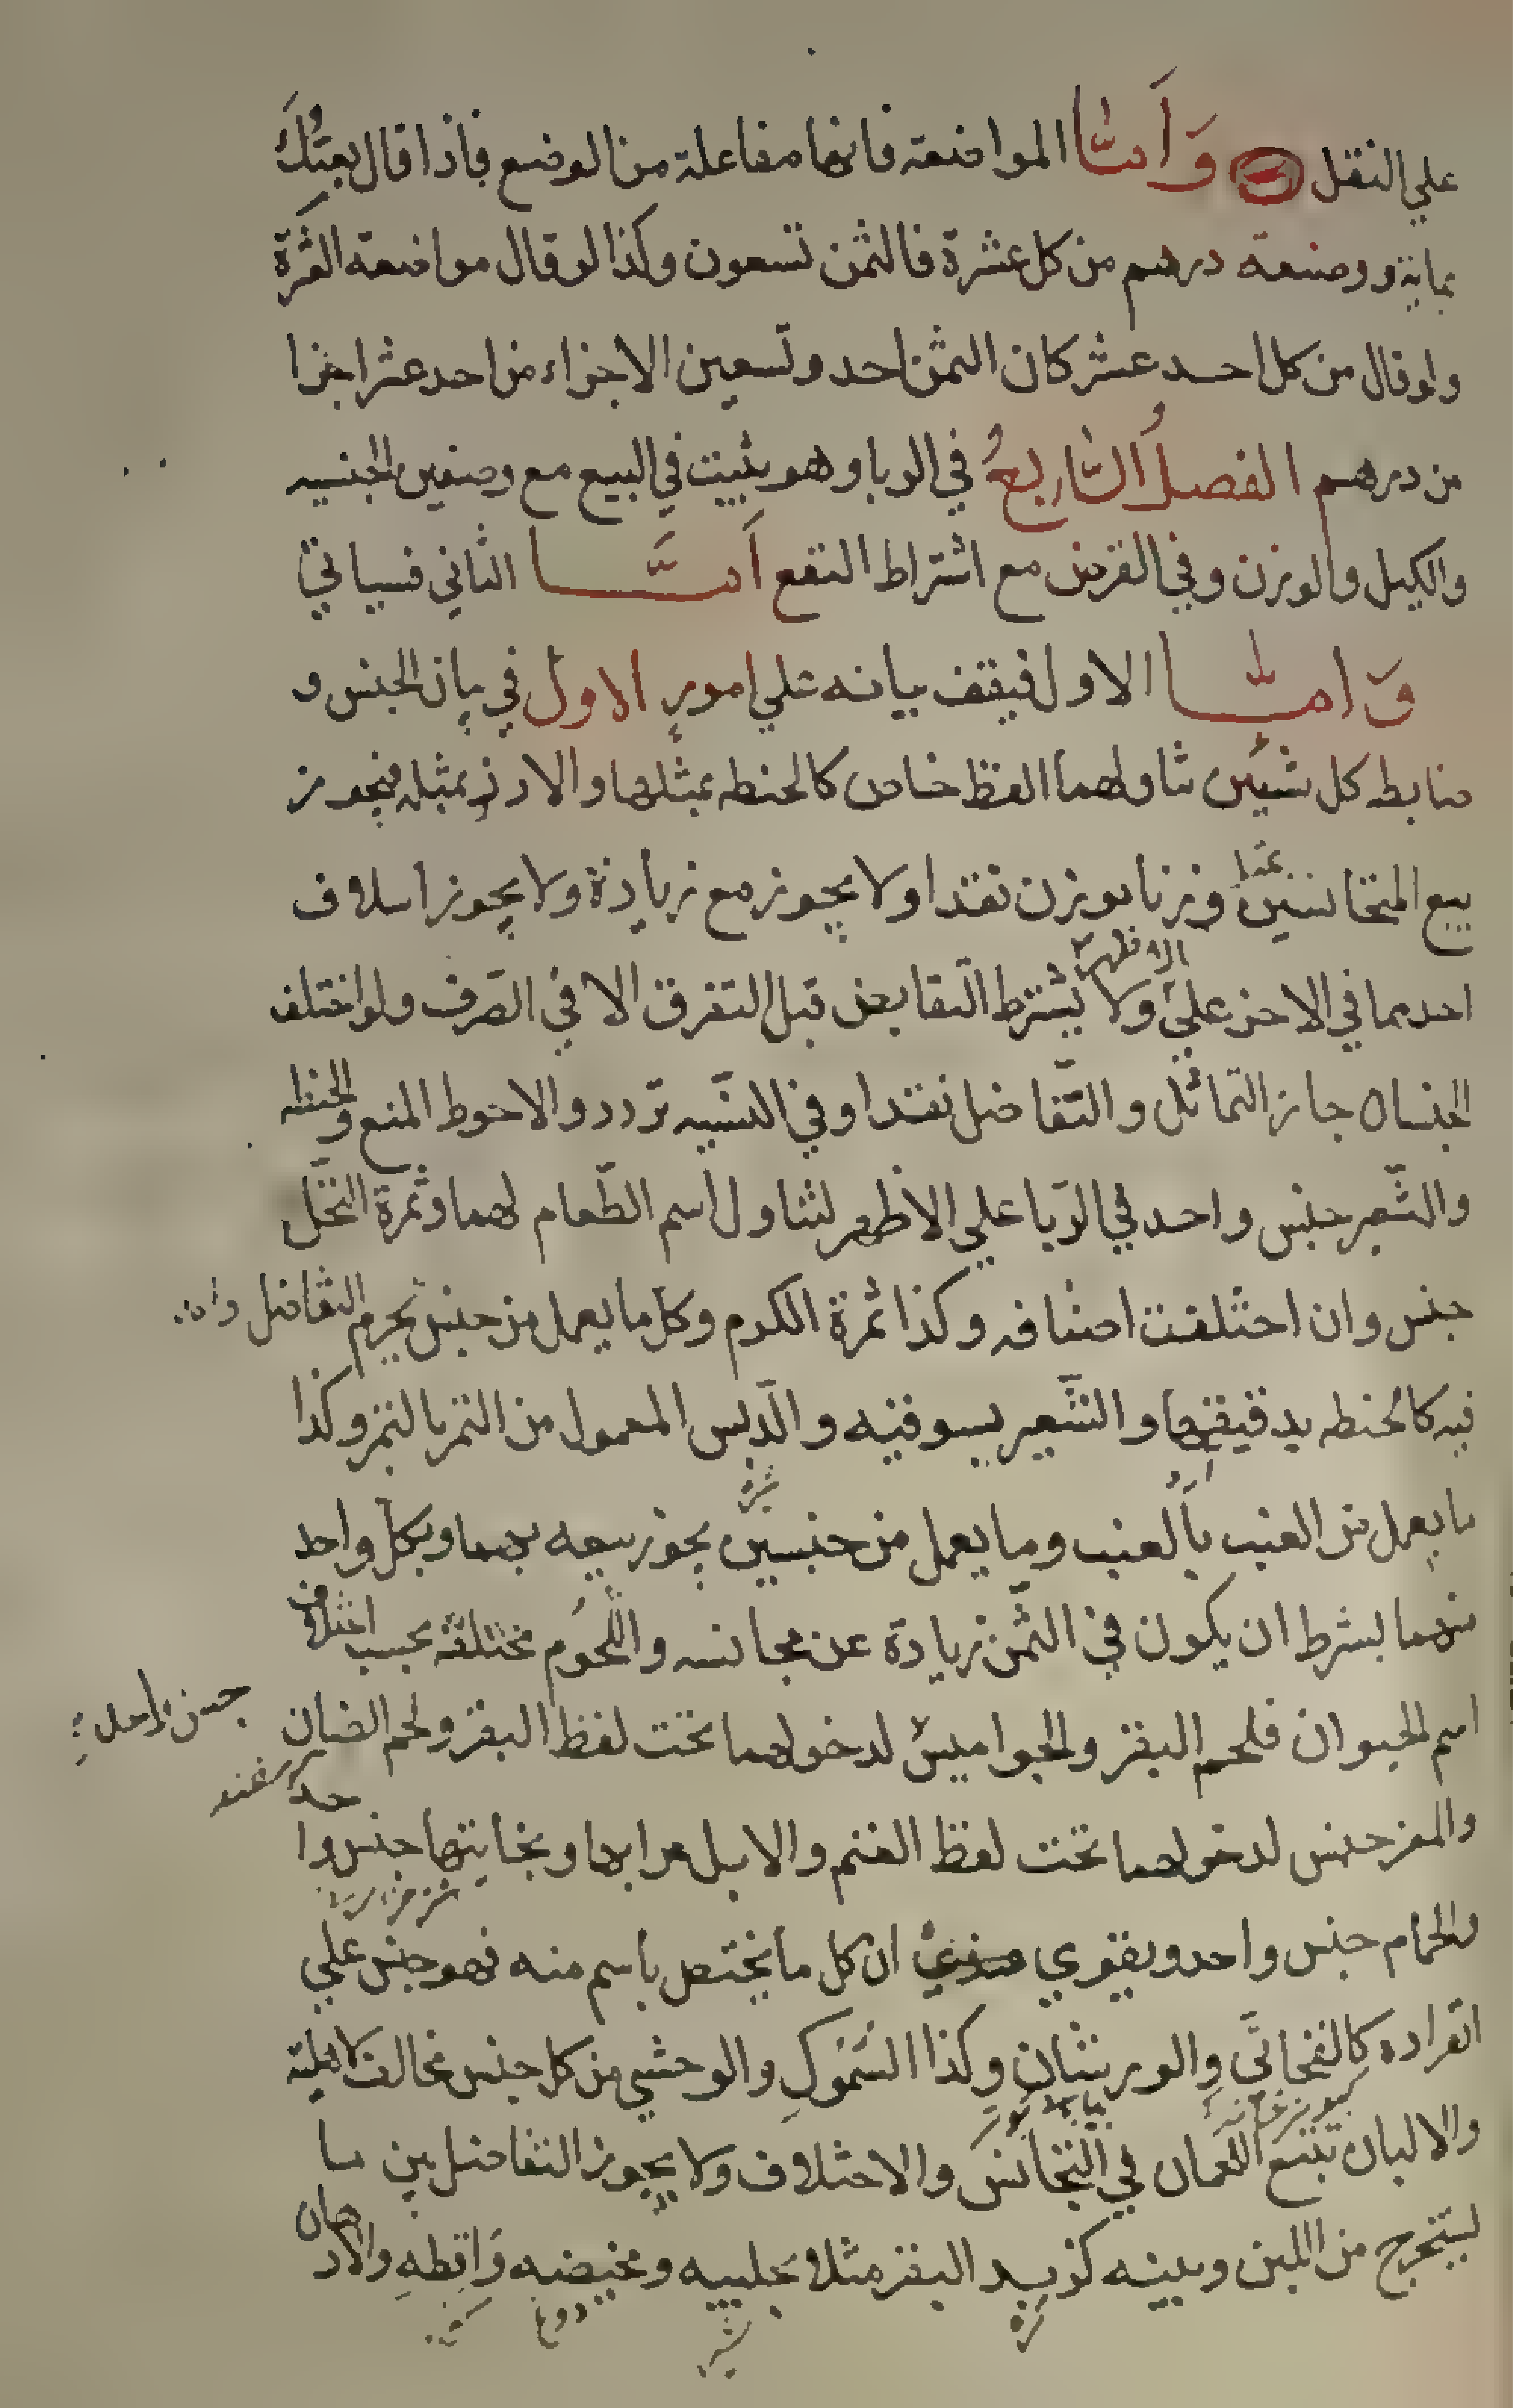 علي النقل وَأَمَّا المواضعة فانها مفاعلة من الوضع فاذا قال بعتُكَ
بماية ووضيعة درهم من كل عشرة فالثمن تسعون وكذا لو قال مواضعة العَشَرة
ولو قال من كل احد عشر كان الثمن احد وتسعين الا جزاء من احد عشر اجزا
من درهم الفصلُ الرَّابعُ في الربا وهو يثبت في البيع مع وصفين الجنسيه
والكيل والوزن وفي القرض مع اشتراط النفع أَمَّا الثاني فسياتي
وَامّا الاول فيقف بيانه علي امورٍ الاول في بيان الجنس و
ضابطه كل شيئين تناولهما لفظ خاص كالحنطه بمثلها والارز بمثله فيجوز
بيع المتجانسين وزنا بوزن نقدا ولا يجوز مع زيادة ولا يجوز اسلاف
احدهما في الاخر علي الاظهر ولا يشترط التقابض قبل التفرق الا في الصَّرف ولو اختلف
الجنسان جاز التماثل والتَّفاضل نقدا وفي النسّيه تردد والاحوط المنع والحنطه
والشَّعير جنس واحد في الرّبا علي الاظهر لتناول اسم الطّعام لهما وثمرة النَّخل
جنس وان اختلفت اصنافه وكذا ثمرة الكرم وكل ما يعمل من جنس يحرم التفاضل
فيه كالحنطه بدقيقها والشَّعير بسوقيه والدّبس المعمول من التمر بالتمر وكذا
ما يعمل من العنب بالعنب وما يعمل من جنسين يجوز بيعه بهما وبكل واحد
منهما بشرط ان يكون في الثّمن زيادة عن مجانسه واللُّحُوم مختلفة بحسب اختلاف
اسم الحيوان فلحم البقر والجواميس جنس واحد لدخولهما تحت لفظ البقر ولحم الضان
والمعز جنس لدخولهما تحت لفظ الغنم والابل عرابها وبخاتيها جنس واحد
والحمام جنس واحد ويقوي عندي ان كل ما يختص باسم منه فهو جنس علي
انفراده كالفخاتي والورشان وكذا السُّمُوكِ والوحشي من كل جنس مخالف لاهليه
والالبان تتبع اللحمان في التَّجانس والاختلاف ولا يجوز التفاضل بين ما
يستخرج من اللبن وبينه كزبد البقر مثلا بحليبه ومخيضه وَاقطِهِ والادهان